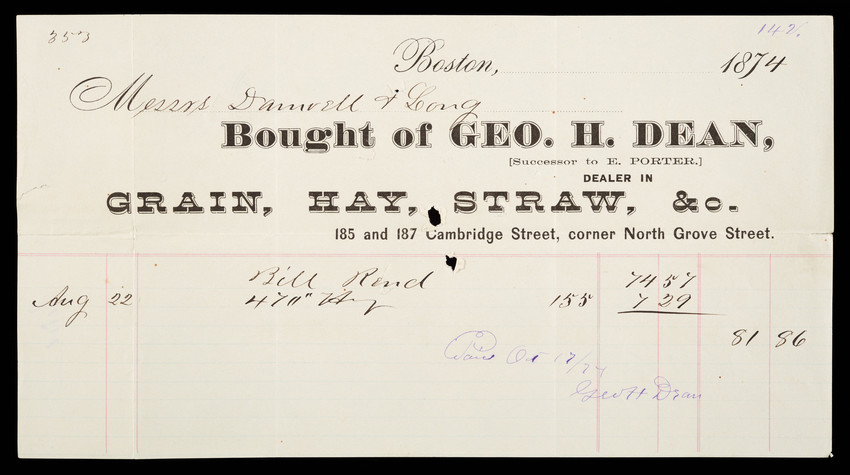 353
142.
Boston, 1874
Messrs Damrell & Long
Bought of GEO. H. DEAN,
[Successor to E. PORTER.]
DEALER IN
GRAIN, HAY, STRAW, &c.
185 and 187 Cambridge Street, corner North Grove Street.
Bill Rend 74 57
Aug 22 470# Hay 155 7 29
81 86
Paid Oct 17/74
Geo H Dean